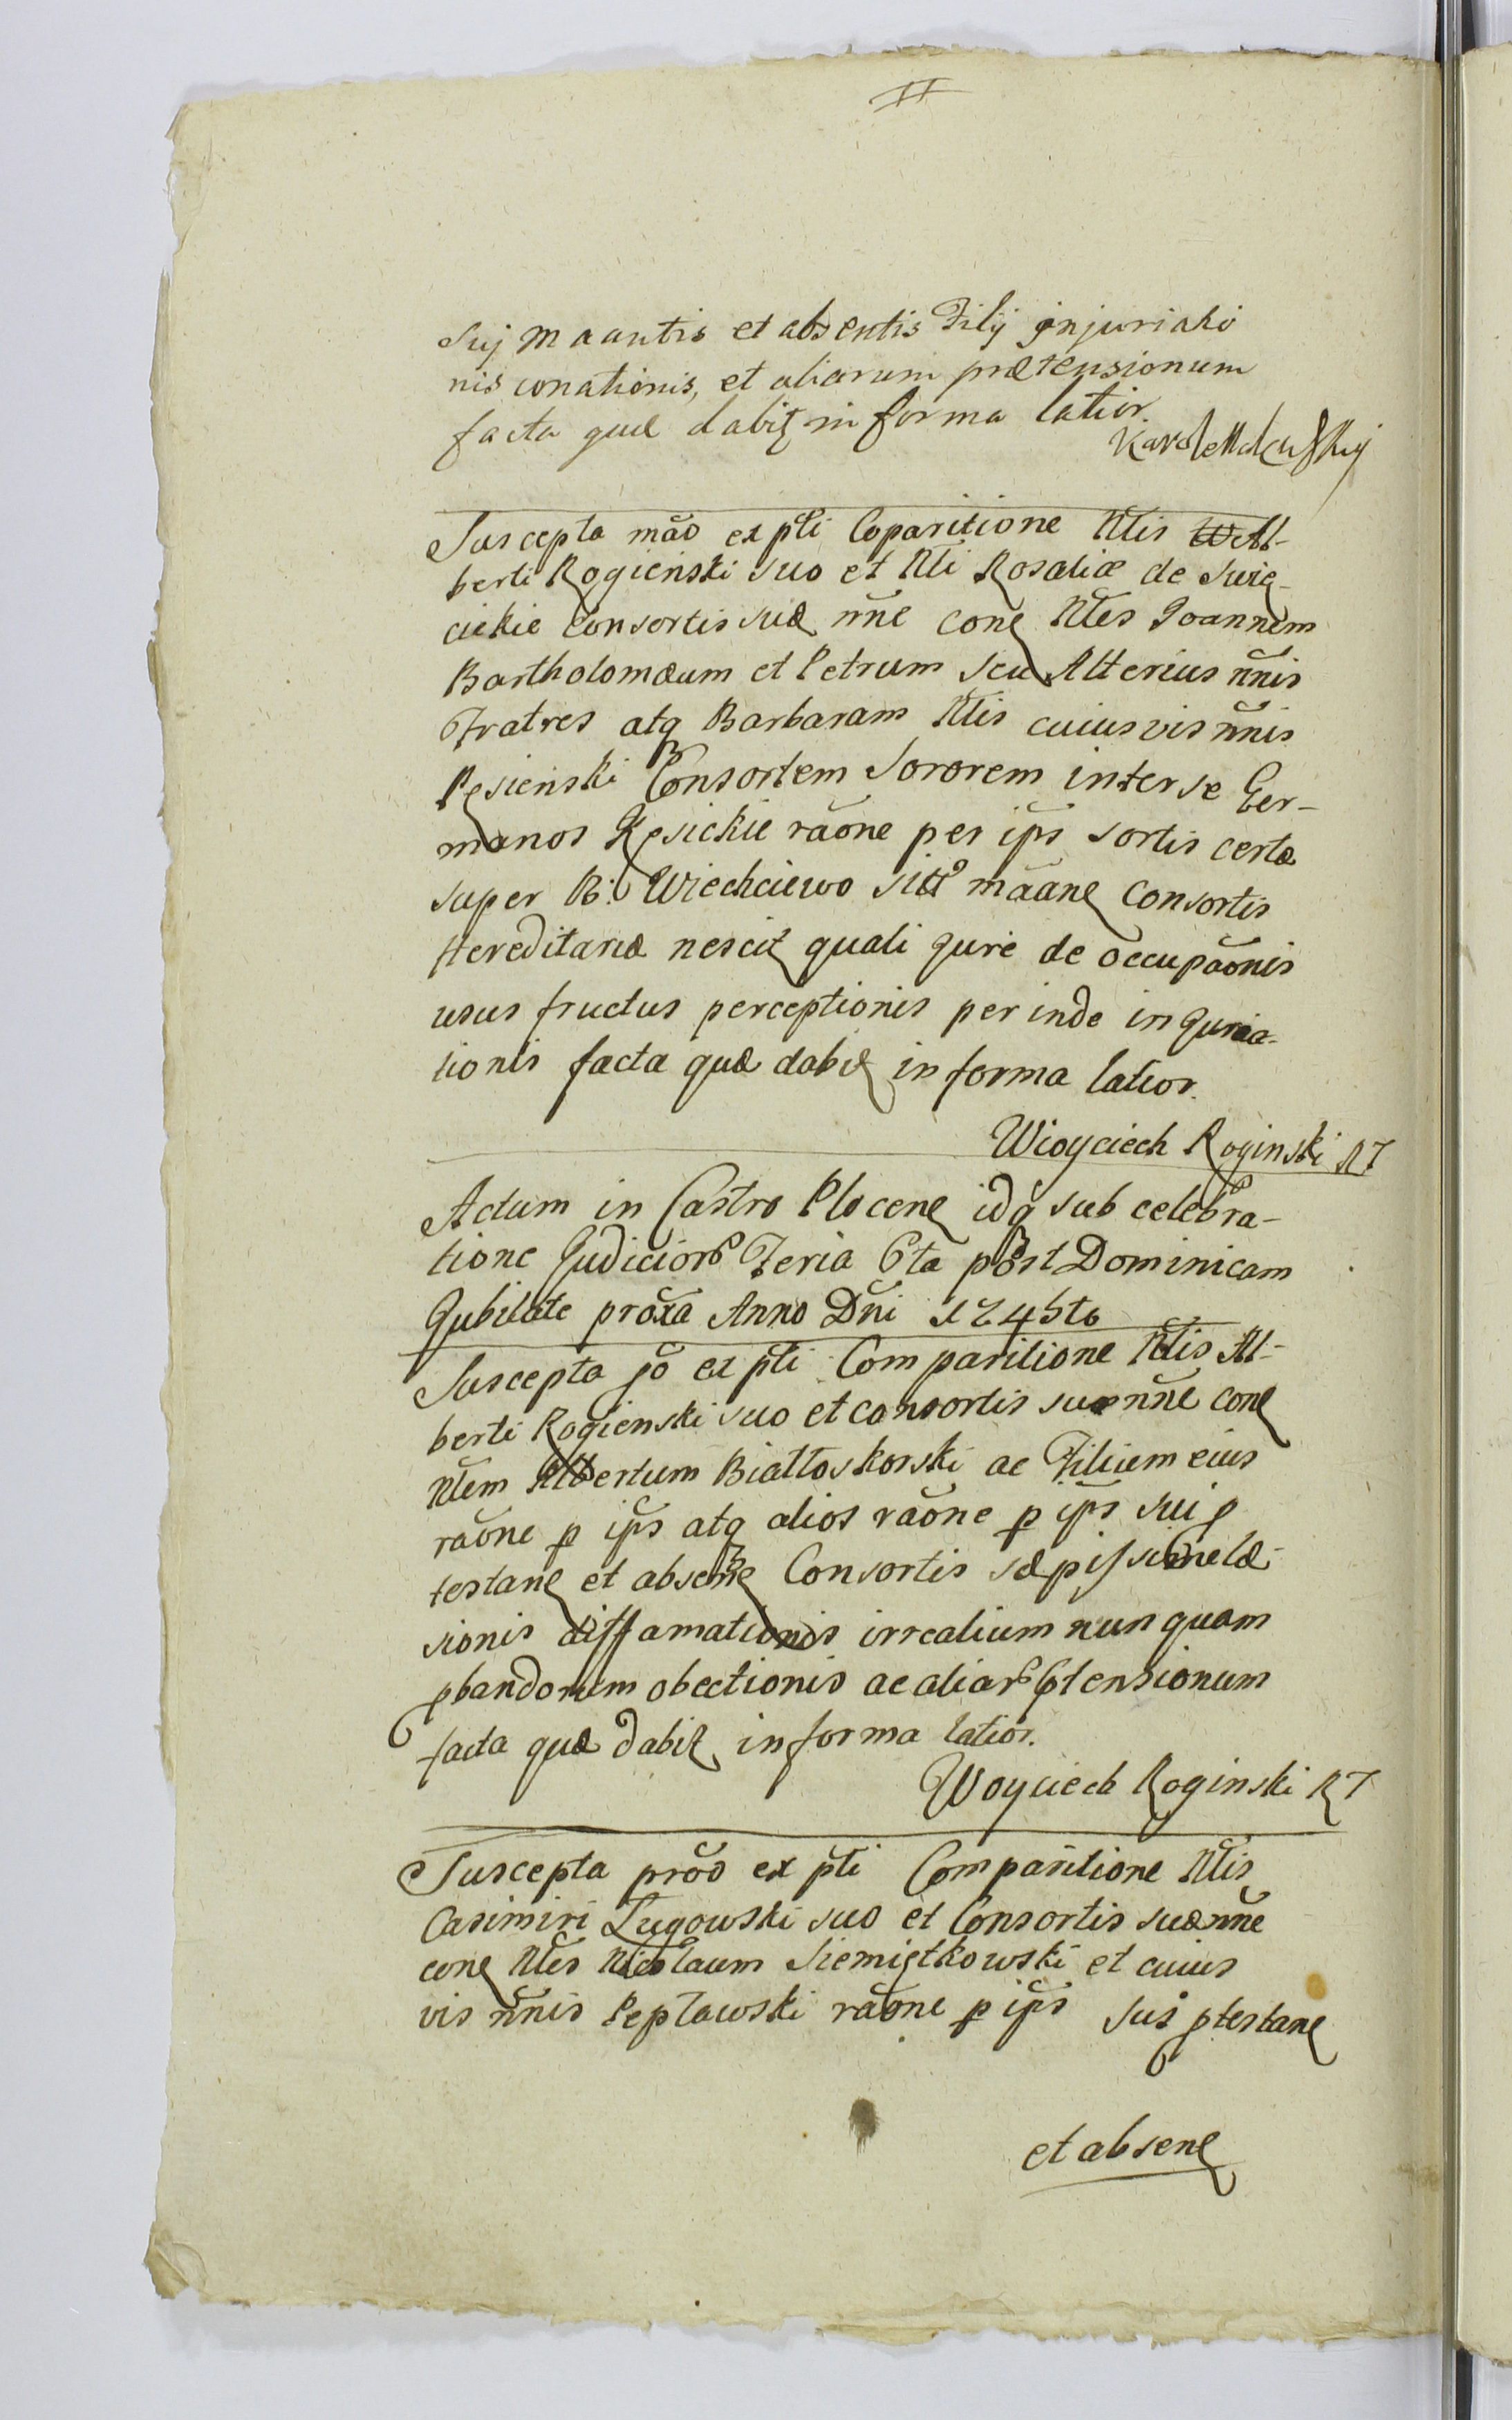 suj maantis et absentis Filij injuriatio
nis conationis, et aliarum prætensionum
facta quæ dabitz in forma latior.
Suscepta mão ex pti Coparitione Ntis Al-
berti Rogieński suo et Ntis Rosaliæ de Swię-
cickie Consortis suæ nñe cone Ntes Joannem
Bartholomæum et Petrum seu Alterius nñis
Fratres atq Barbaram Ntis cuiusvis nñis
Pęsieński Consortem Sororem inter se Ger-
manos Kęsickie rãone per ips sortis certæ
super B: Wiechciewo sitt mãane Consortis
Hereditariæ nescit quali jure de occupãonis
usus fructus perceptionis perinde injuria-
tionis facta quæ dabit in forma latior.
Wioyciech Roginski
Actum in Castro Plocene idq sub celebra-
tione Judicior Feria 6ta post Dominicam
Jubilate proxa Anno Dñi 1745to
Suscepta po ex pti Comparitione Ntis Al-
berti Rogienski suo et consortis suæ nñe cone
Ntem Albertum Białłoskorski ac Filium eius
rãone p ips atq alios rãone p ips sui p
testane et absene Consortis sæpissime læ-
sionis diffamationis irrealium nunquam
pbandorum obectionis ac aliar ptensionum
facta quæ dabit in forma latior.
Woyciech Roginski
Suscepta prõo ex pti Comparitione Ntis
Casimiri Ługowski suo et Consortis suæ nñe
cone Ntes Nicolaum Siemiętkowski et cuius
vis nñis Peptawski rãone p ips sui ptestane
et absene